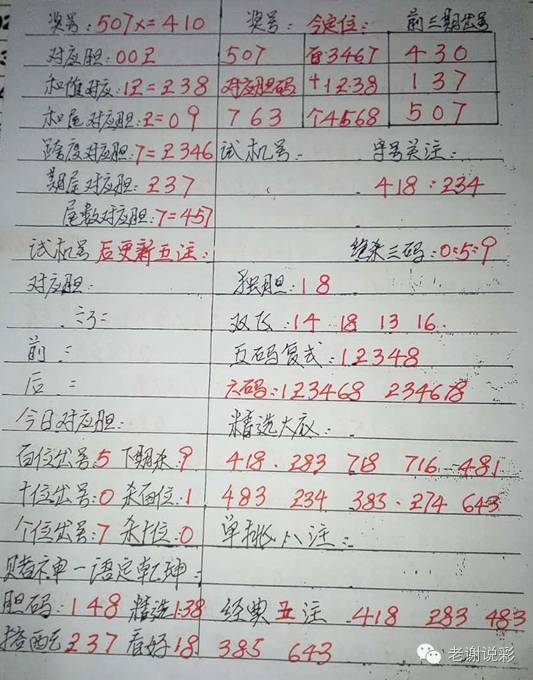 奖号:507x=410 奖号: 今定位: 前三期出号
对应胆:002 507 百3467 430
和值对应:12=238 对应胆码 十1238 137
和尾对应胆:2=09 763 个4568 507
跨度对应胆:7=2346 试机号: 字号关注:
期尾对应胆:237 418:234
尾数对应胆:7=457
试机号后更新五注: 绝杀三码:0:5:9
对应胆: 独胆:18
言: 双飞:14 18 13 16.
前: 五码复式:12348
后: 六码:123468 234678
今日对应胆: 精选大底:
百位出号:5 下期杀:9 418. 283 718 716 481
十位出号:0 杀百位:1 483 234 383. 274 643
个位出号:7 杀十位:0 单挑八注:
赌神一语定乾坤:
胆码:148 精选138 经典五注 418 283 483
搭配237 看好18 385 643
老谢说彩